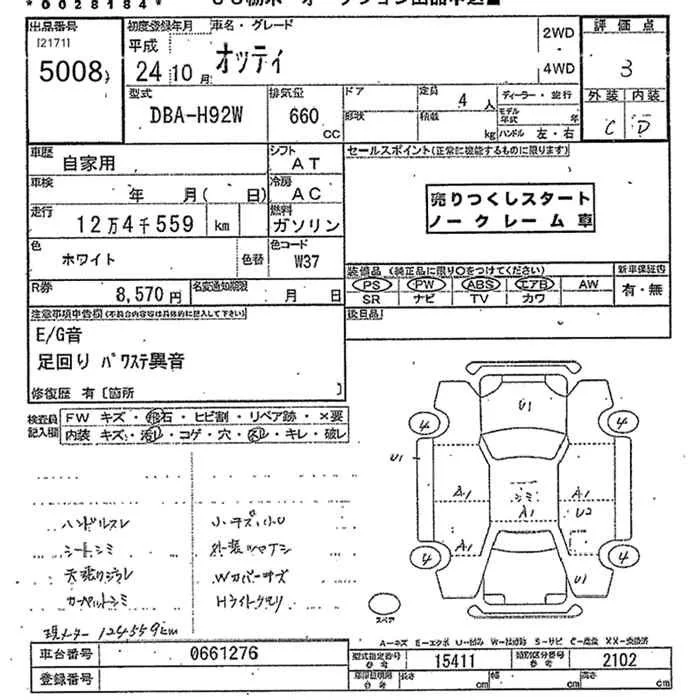 *0028184*
出品番号 初度登録年月 車名・グレード 2WD 評価点
[2171] 平成
5008 24 10月 オッティ 4WD 3
型式 排気量 ドア 定員 4人 ディーラー・並行 外装 内装
DBA-H92W 660 CC 形状 積載 kg モデル年式 年 ハンドル 左・右 C D
車歴 自家用 シフト AT セールスポイント(正常に機能するものに限ります)
車検 年 月( 日) 冷房 AC
売りつくしスタート
ノークレーム車
走行 12万4千559 km 燃料 ガソリン
色 ホワイト 色替 色コード W37
装備品 (純正品に限り○をつけてください) 新車保証書
PS PW ABS エアB AW 有・無
SR ナビ TV カワ
R券 8,570円 名変通知期限 月 日
注意事項申告欄(不具合内容等は具体的に記入して下さい) 後日品
E/G音
足回り パワステ異音
修復歴 有 [箇所 ]
検査員記入欄 FW キズ・飛石・ヒビ割・リペア跡・×要
内装 キズ・汚レ・コゲ・穴・スレ・キレ・破レ
U1
4 4
U1
A1 シミ A1
A1 U2
A1
4 4
U1
ハンドルスレ 小キズ・小U
シートシミ 外装ツヤナシ
天張りシミ Wカバーキズ
カーペットシミ Hライトクモリ
スペア
現メーター 124559km
A-キズ E-エクボ U-凹み W-波 S-サビ C-腐食 XX-交換済
車台番号 0661276 型式指定番号 参考 15411 類別区分番号 参考 2102
登録番号 長さ cm 幅 cm 高さ cm